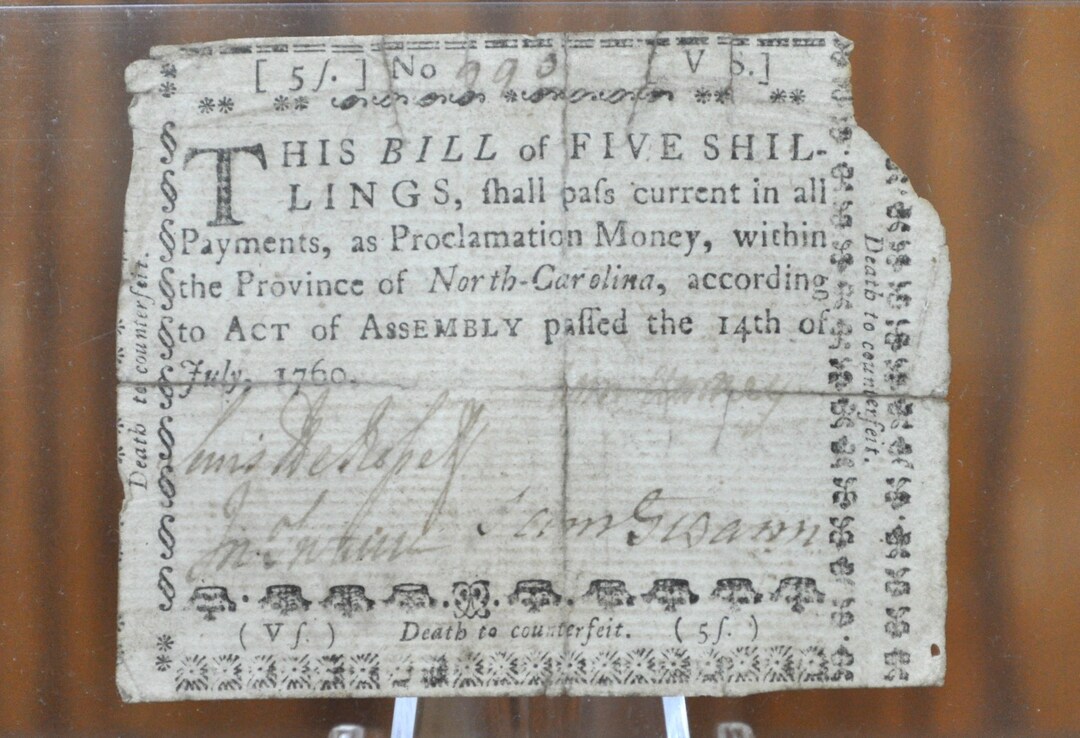 [ 5/. ] No 993 [ V S.]
THIS BILL of FIVE SHIL-
LINGS, ſhall paſs current in all
Payments, as Proclamation Money, within
the Province of North-Carolina, according
to ACT of ASSEMBLY paſſed the 14th of
July, 1760.
Sam Swann
( V ſ. ) Death to counterfeit. ( 5 ſ. )
Death to counterfeit.
Death to counterfeit.